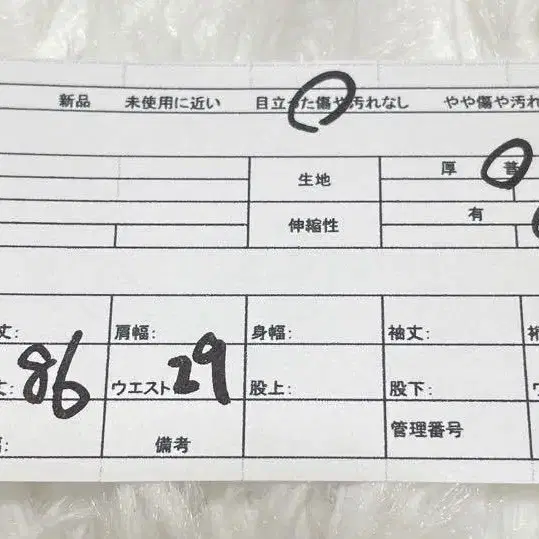 新品 未使用に近い 目立った傷や汚れなし やや傷や汚れ
生地 厚 普
伸縮性 有
丈: 肩幅: 身幅: 袖丈:
丈: 86 ウエスト 29 股上: 股下:
備考 管理番号